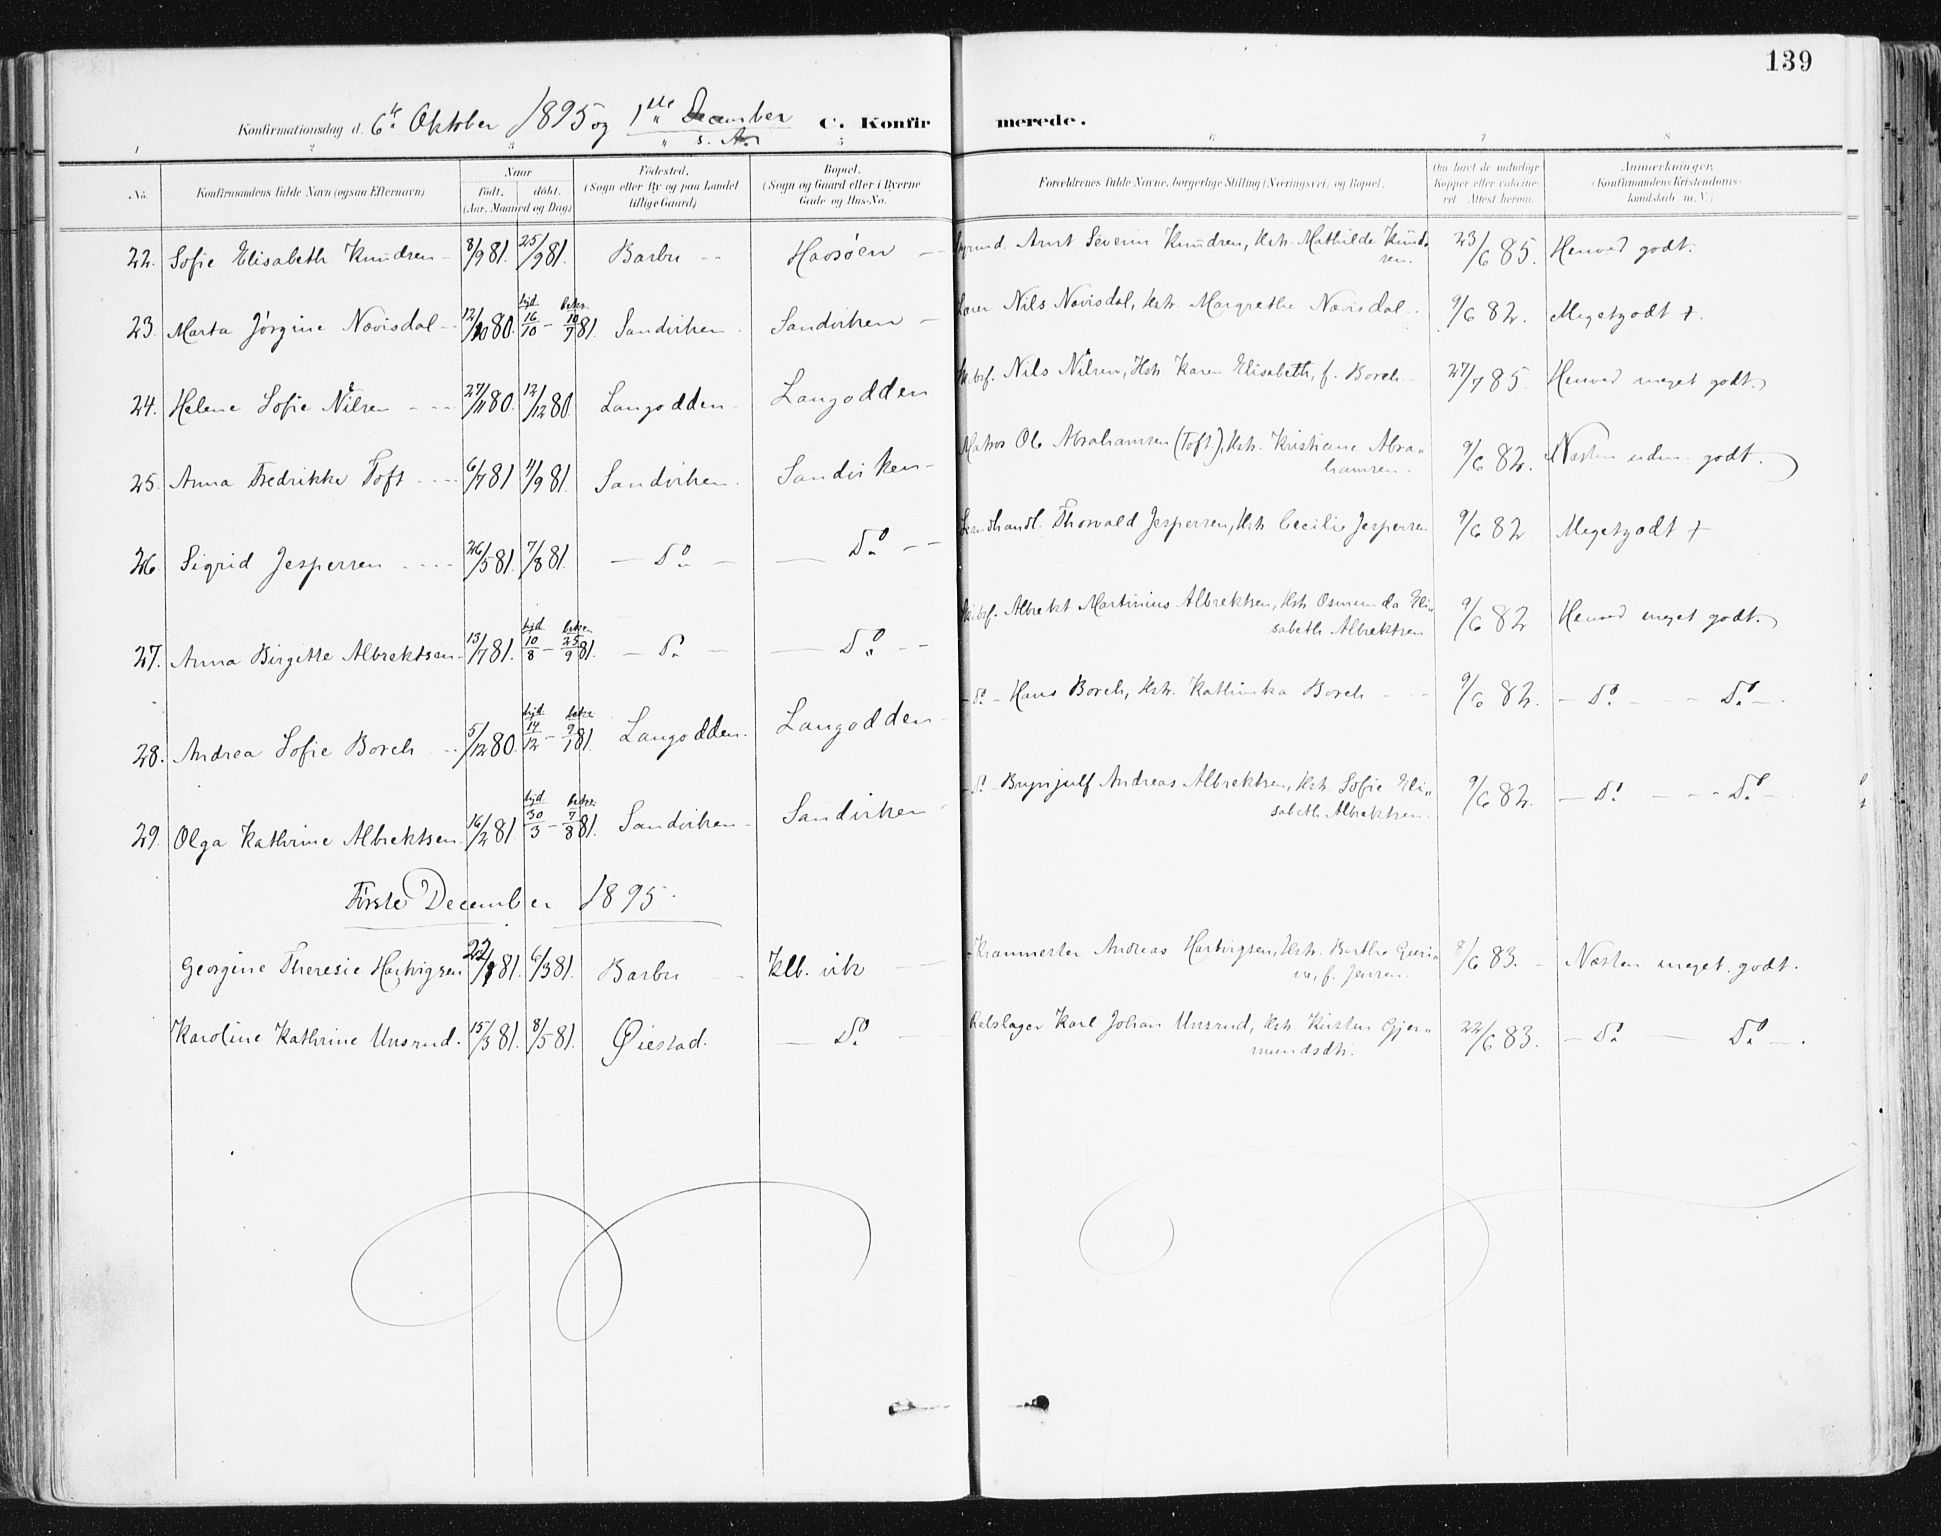 139
Konfirmationsdag d. 6te Oktober 1895 og 1ste December s. A. C. Konfirmerede.
1 2 3 " 5 6 7 8
No. Konfirmandens fulde Navn (ogsaa Efternavn) Naar født. døbt. (Aar, Maaned og Dag) Fødested. (Sogn eller By og paa Landet tillige Gaard) Bopæl. (Sogn og Gaard eller i Byerne Gade og Hus-No. Forældrenes fulde Navne, borgerlige Stilling (Næringsvei) og Bopæl. Om havt de naturlige Kopper eller vaccineret. Attest herom. Anmærkninger. (Konfirmandens Kristendomskundskab m. V.)
22. Sofie Elisabeth Knudsen 8/9 81. 25/9 81. Barbu Havsøen Arnt Severin Knudsen, Hstr. Mathilde Knudsen. 23/6 85. Henved godt.
23. Marta Jørgine Nævisdal 12/10 80 hjd 16/10 – bekr 10/7 81. Sandviken Sandviken Nils Nævisdal, Hstr. Margrethe Nævisdal 9/6 82. Megetgodt +.
24. Helene Sofie Nilsen 27/11 80. 12/12 80. Langodden Langodden Nils Nilsen, Hstr. Karen Elisabeth, f. Borch 27/7 85. Henved meget godt.
25. Anna Fredrikke Toft 6/7 81 4/9 81. Sandviken. Sandviken Matros Ole Abrahamsen (Toft), Hstr. Kristiane Abrahamsen. 9/6 82. Næsten udm. godt.
26. Sigrid Jespersen 26/5 81. 7/8 81. – Do – – Do – Thorvald Jespersen, Hstr. Cecilie Jespersen 9/6 82 Megetgodt +
27. Anna Birgitte Albrektsen 13/7 81. hjd 10/8 – bekr 25/9 81. – Do – – Do – Albrekt Martinius Albrektsen, Hstr. Osmunda Elisabeth Albrektsen 9/6 82 Henved meget godt.
28. Andrea Sofie Borch 5/12 80. hjd 14/12 – bekr 9/1 81. Langodden. Langodden – Do – Hans Borch, Hstr. Kathinka Borch 9/6 82. – Do – – Do –.
29. Olga Kathrine Albrektsen 16/2 81. hjd 30/3 – bekr 7/8 81. Sandviken Sandviken – Do – Brynjulf Andreas Albrektsen, Hstr. Sofie Elisabeth Albrektsen. 9/6 82. – Do – – Do –.
Første December 1895.
Georgine Theresie Hartvigsen 22/1 81. 6/3 81. Barbu Klb. vik Andreas Hartvigsen, Hstr. Berthe f. Jensen. 8/6 83. Næsten meget godt.
Karoline Kathrine Unsrud. 15/3 81. 8/5 81. Øiestad. – Do – Rebslager Karl Johan Unsrud, Hstr. Kirsten Gjermundsdtr. 22/6 83. – Do – – Do –.